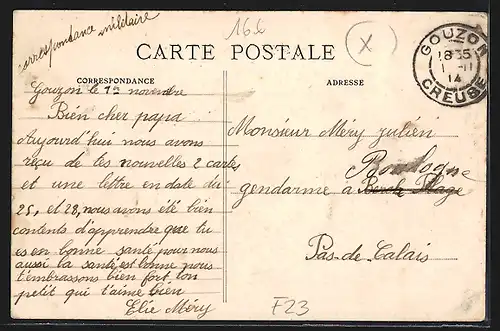 correspondance militaire
166
X
CARTE POSTALE
CORRESPONDANCE
ADRESSE
GOUZON
18 35
1 - 11
14
CREUSE
Gouzon le 1er novembre
Bien cher papa
Aujourd'hui nous avons
reçu de tes nouvelles 2 cartes
et une lettre en date du
25, et 28, nous avons été bien
contents d'apprendre que tu
es en bonne santé pour nous
aussi la santé est bonne nous
t'embrassons bien fort ton
petit qui t'aime bien
Elie Méry
Monsieur Méry julien
Boulogne
gendarme à Berck Plage
Pas-de-Calais
F23